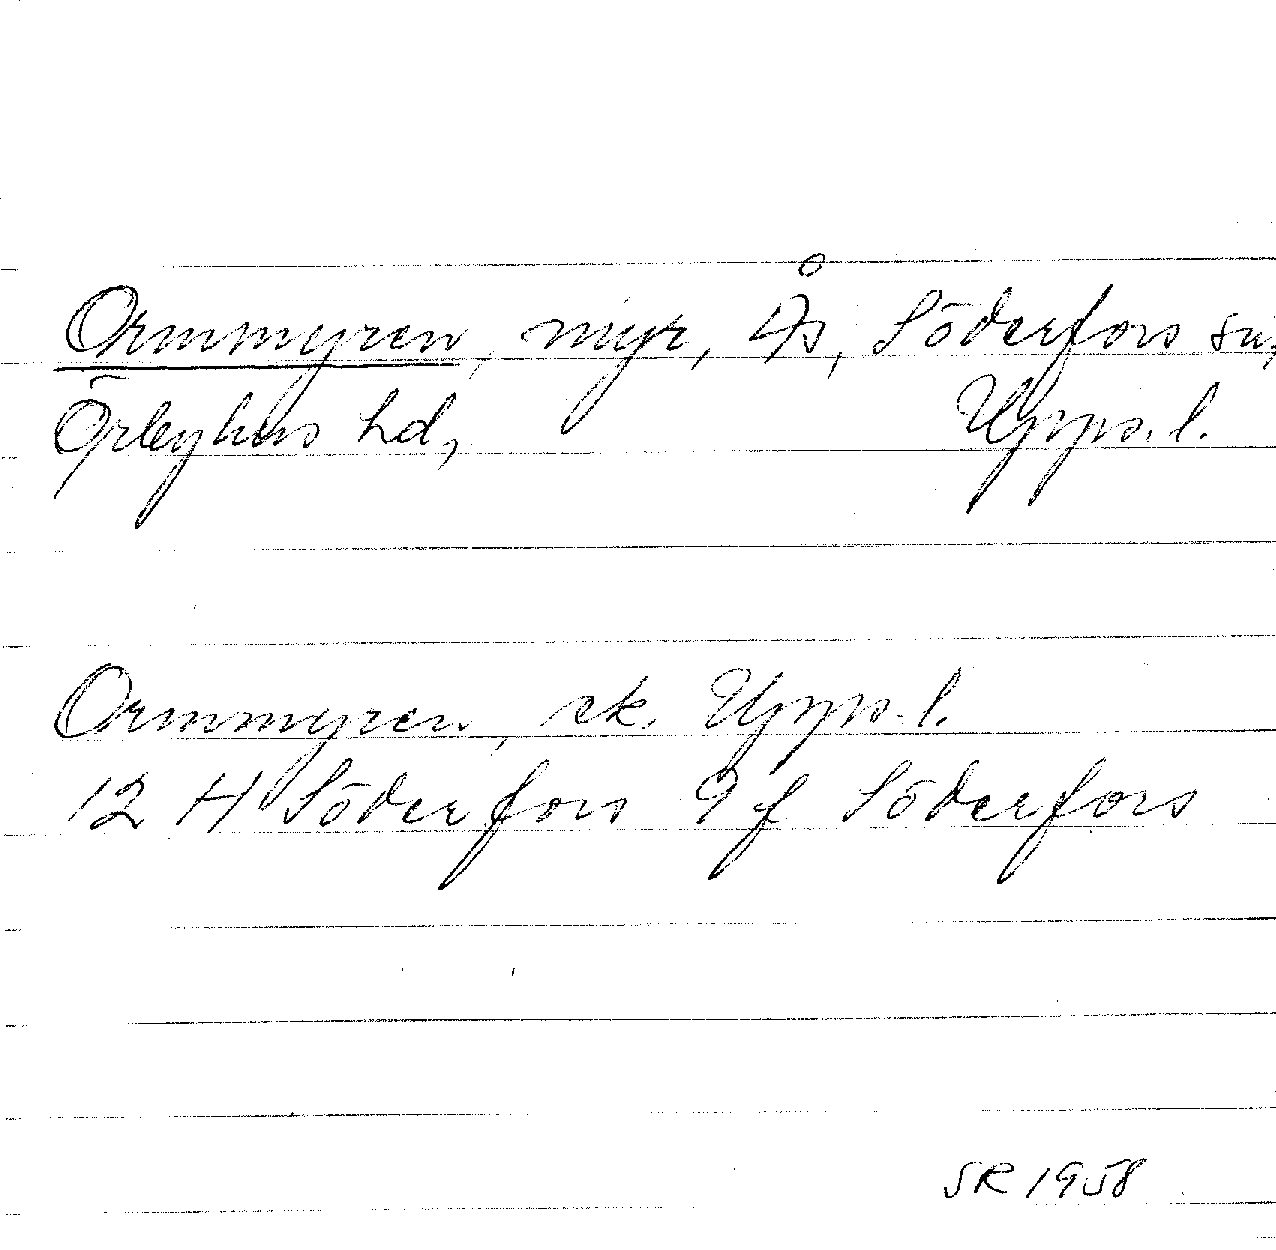 Ormmyren, myr, Ås, Söderfors sn,
Örbyhus hd, Upps. l.
Ormmyren, ek. Upps. l.
12 H Söderfors 9 f Söderfors
SR 1958